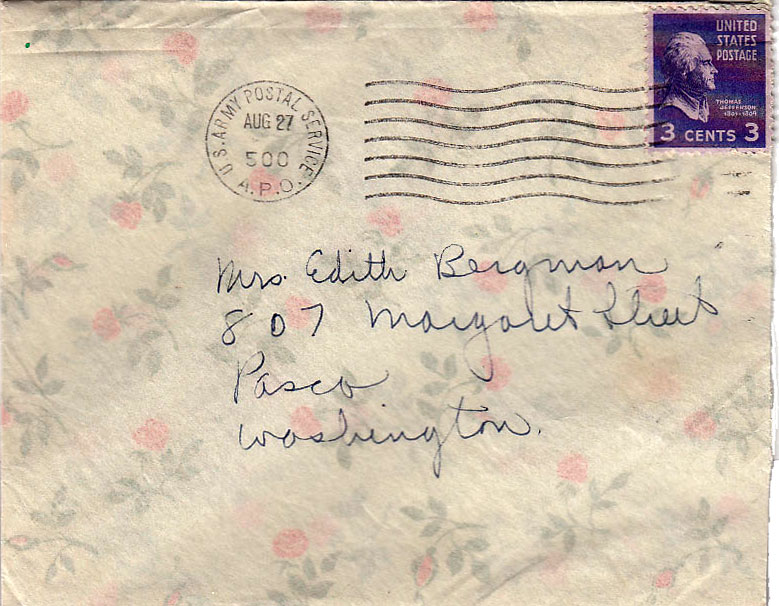 UNITED
STATES
POSTAGE
THOMAS
JEFFERSON
1801-1809
3 CENTS 3
U.S. ARMY POSTAL SERVICE
AUG 27
500
A.P.O.
Mrs. Edith Bergman
807 Margaret Street
Pasco
Washington.